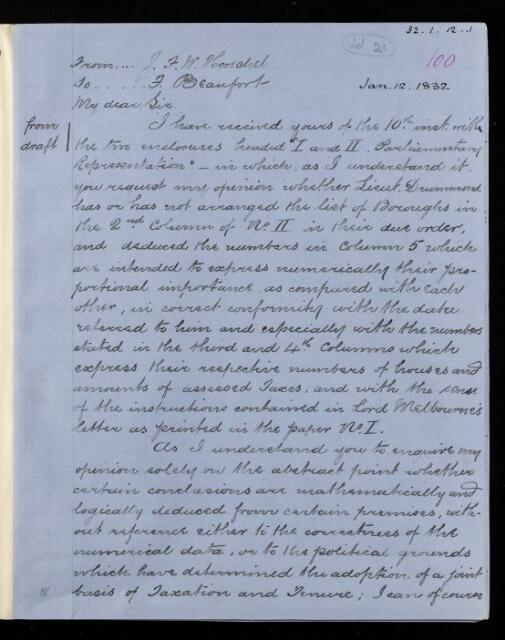 32.1.12.1
Vol 21
100
From.... J. F. W. Herschel
To..... F. Beaufort
Jan. 12. 1832
My dear Sir
from
draft
I have received yours of the 10th inst. with
the two enclosures headed "I and II Parliamentary
Representation" – in which, as I understand it
you request my opinion whether Lieut. Drummond
has or has not arranged the list of Boroughs in
the 2nd Column of No II in their due order,
and deduced the numbers in Column 5 which
are intended to express numerically their pro-
portional importance, as compared with each
other, in correct conformity with the data
referred to him and especially with the numbers
stated in the third and 4th Columns which
express their respective numbers of houses and
amounts of assessed Taxes, and with the sense
of the instructions contained in Lord Melbourne's
letter as printed in the paper No I.
As I understand you to enquire my
opinion solely on the abstract point whether
certain conclusions are mathematically and
logically deduced from certain premises, with-
out reference either to the correctness of the
numerical data, or to the political grounds
which have determined the adoption of a joint
basis of Taxation and Tenure; I can of course